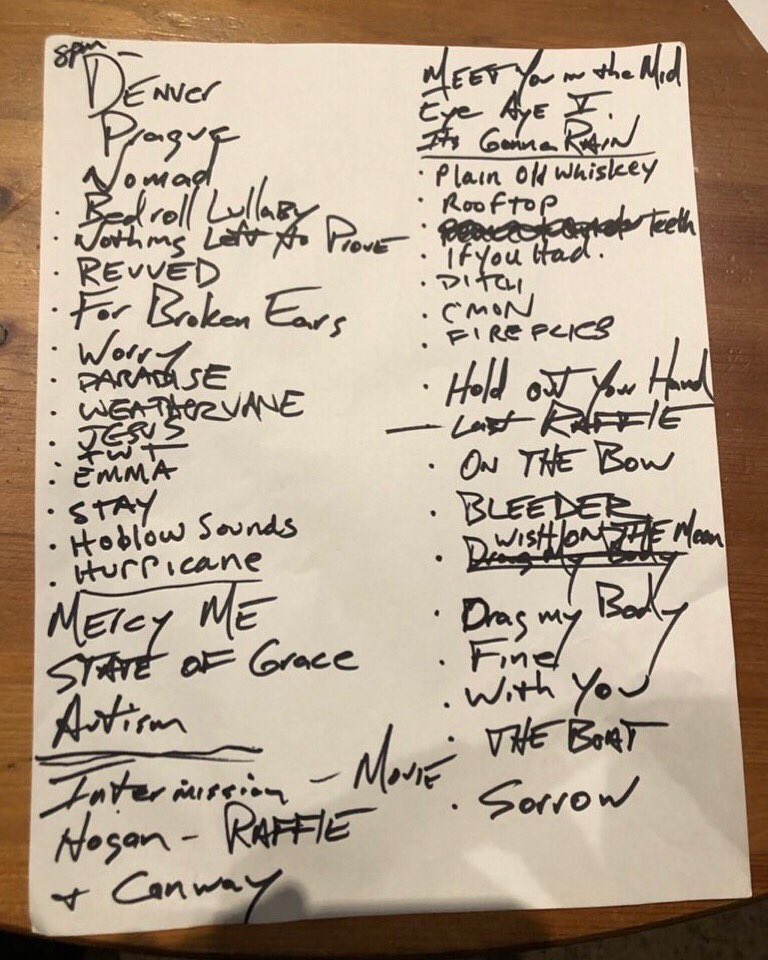 8pm
Denver
Prague
Nomad
· Bedroll Lullaby
· Nothing Left to Prove
· REVVED
· For Broken Ears
· Worry
· PARADISE
· WEATHERVANE
· JESUS
· IWT
· EMMA
· STAY
· Hollow Sounds
· Hurricane
Mercy ME
STATE OF Grace
Autism
Intermission – Movie
Hogan – RAFFLE
+ Conway
MEET You in the Mid
Eye Aye I.
It's Gonna RAIN
· Plain Old Whiskey
· ROOFTOP
· Teeth
· If you Had.
· DITCH
· C'MON
· FIREFLIES
· Hold out Your Hand
— Last RAFFLE
· ON THE BOW
· BLEEDER
WISH ON THE Moon
· Drag My Body
· Drag my Body
· Fine
· With You
· THE BOAT
· Sorrow